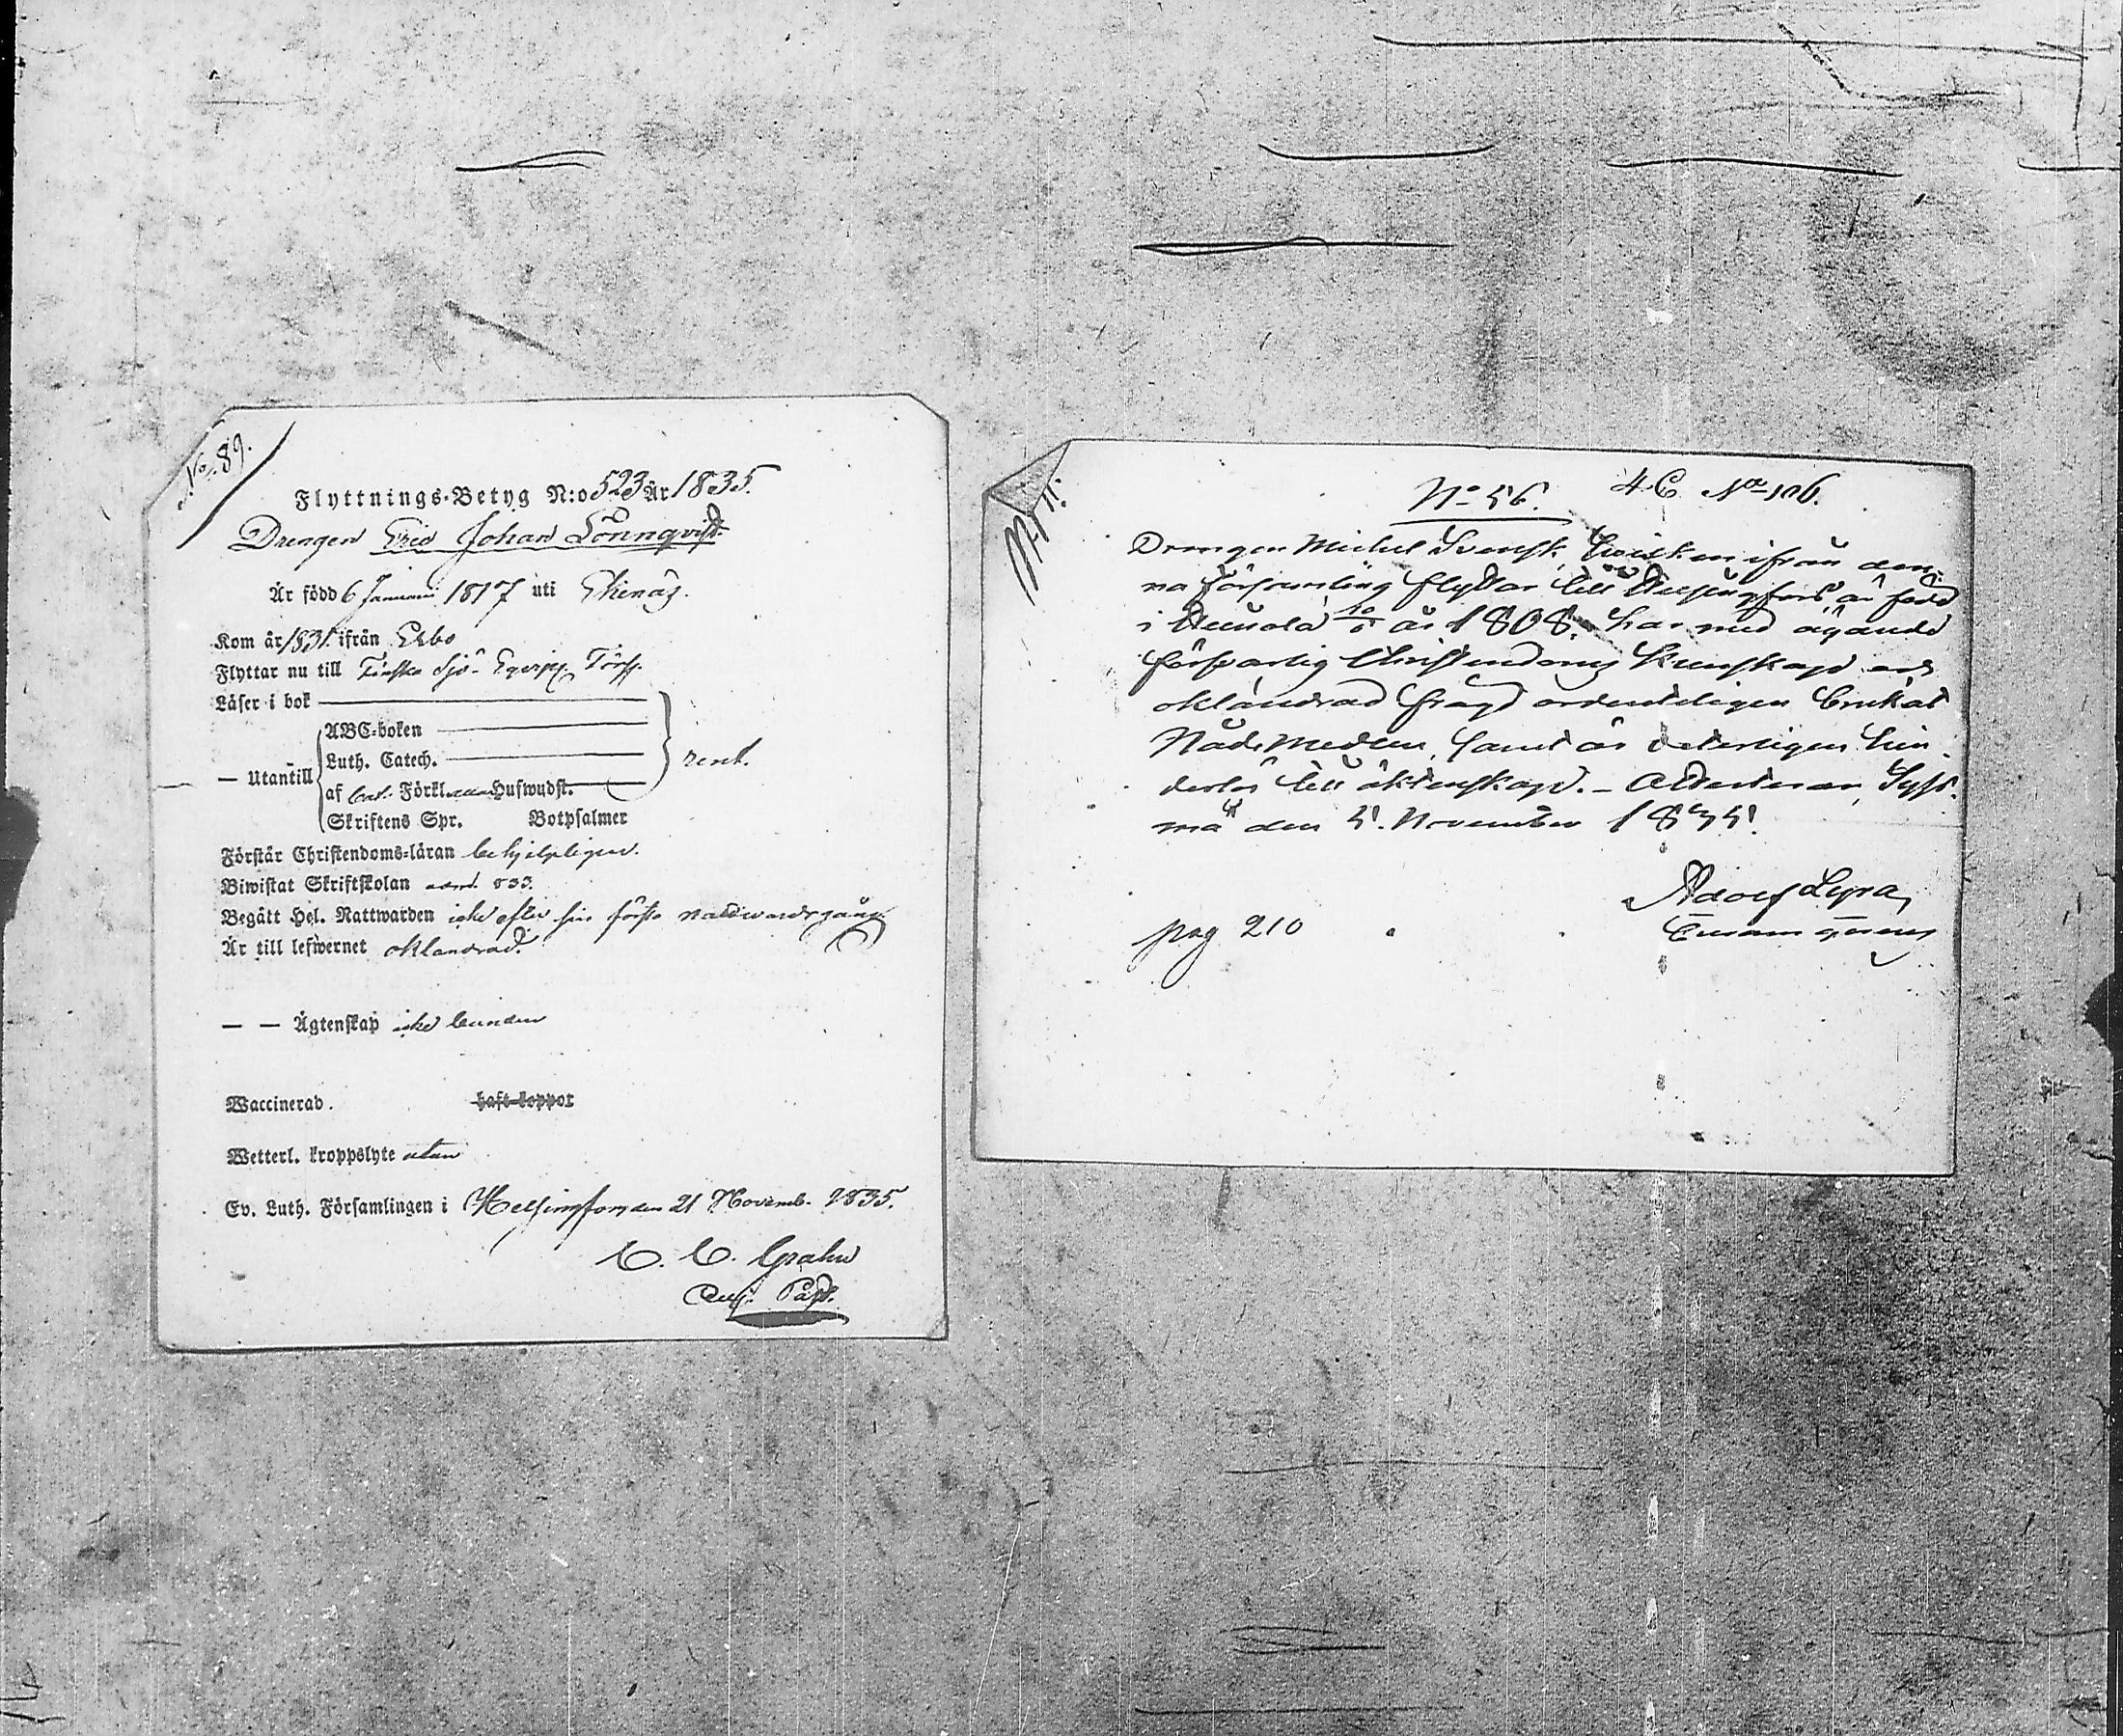 No. 89.
Flyttnings-Betyg N:o 523 År 1835.
Drengen Eric Johan Lönnqvist.
Är född 6 Januari 1817 uti Ekenäs.
Kom år 1831 ifrån Esbo
Flyttar nu till Finska Sjö-Eqvip.
Läser i bok
— Utantill
ABC-boken
Luth. Catech.
rent.
af Förkl. Hufwudst.
Skriftens Spr. Botpsalmer
Förstår Christendoms-läran behjelpligen.
Biwistat Skriftskolan 833.
Begått Hel. Nattwarden icke efter sin första nattvardsgång
Är till lefwernet oklandrad.
— — Ägtenskap icke bunden
Waccinerad. haft koppor
Wetterl. kroppslyte utan
Ev. Luth. Församlingen i Helsingfors den 21 Novemb. 1835.
C. C. Grahn
Past.
No 56. 4 C No 106.
Drengen Michel Svensk, ifrån den-
na församling flyttar till Helsingfors, är född
i år 1808. har med ägande
försvarlig Christendoms kunskap och
oklandrad frägd ordenteligen brukat
Nådemedlen, samt är veterligen hin-
derlös till äktenskap. – Attesterar, Syss-
mä den 5. November 1835.
Adolf Lyra,
pag 210